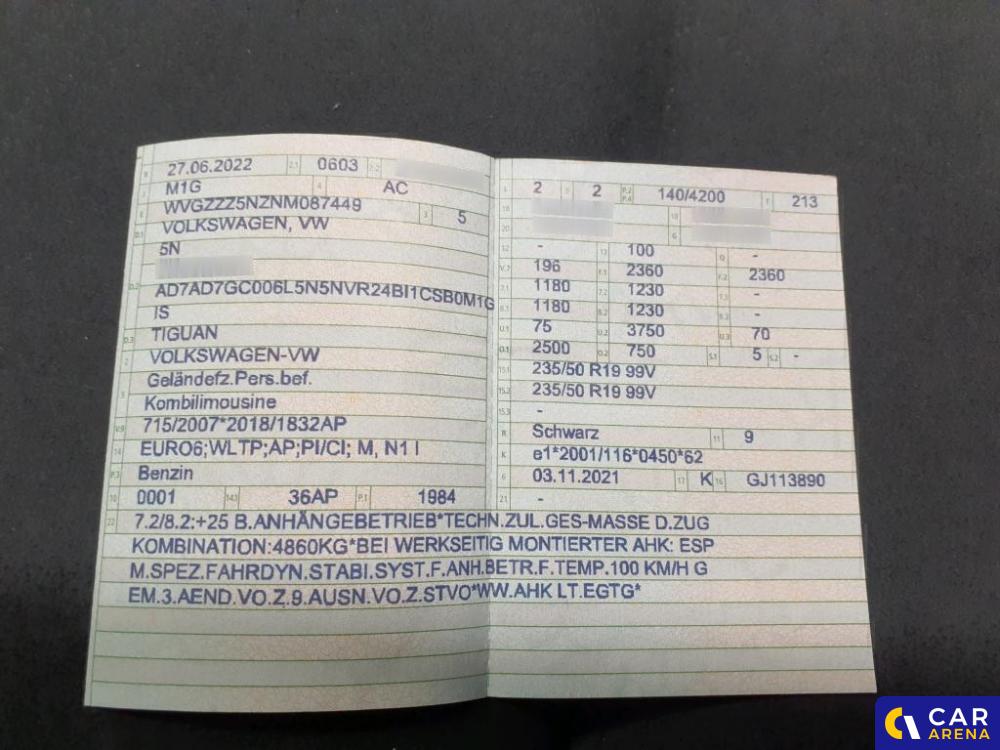 B 27.06.2022 2.1 0603 2.2
J M1G 4 AC
E WVGZZZ5NZNM087449 3 5
D.1 VOLKSWAGEN, VW
5N
D.2 AD7AD7GC006L5N5NVR24BI1CSB0M1G
IS
D.3 TIGUAN
2 VOLKSWAGEN-VW
Geländefz.Pers.bef.
5 Kombilimousine
V.9 715/2007*2018/1832AP
14 EURO6;WLTP;AP;PI/CI; M, N1 I
P.3 Benzin
10 0001 14.1 36AP P.1 1984
L 2 9 2 P.2 P.4 140/4200 T 213
18 19
20 G
12 - 13 100 Q -
V.7 196 F.1 2360 F.2 2360
7.1 1180 7.2 1230 7.3 -
8.1 1180 8.2 1230 8.3 -
U.1 75 U.2 3750 U.3 70
O.1 2500 O.2 750 S.1 5 S.2 -
15.1 235/50 R19 99V
15.2 235/50 R19 99V
15.3 -
R Schwarz 11 9
K e1*2001/116*0450*62
6 03.11.2021 17 K 16 GJ113890
21 -
22 7.2/8.2:+25 B.ANHÄNGEBETRIEB*TECHN.ZUL.GES-MASSE D.ZUG
KOMBINATION:4860KG*BEI WERKSEITIG MONTIERTER AHK: ESP
M.SPEZ.FAHRDYN.STABI.SYST.F.ANH.BETR.F.TEMP.100 KM/H G
EM.3.AEND.VO.Z.9.AUSN.VO.Z.STVO*WW.AHK LT.EGTG*
CAR
ARENA